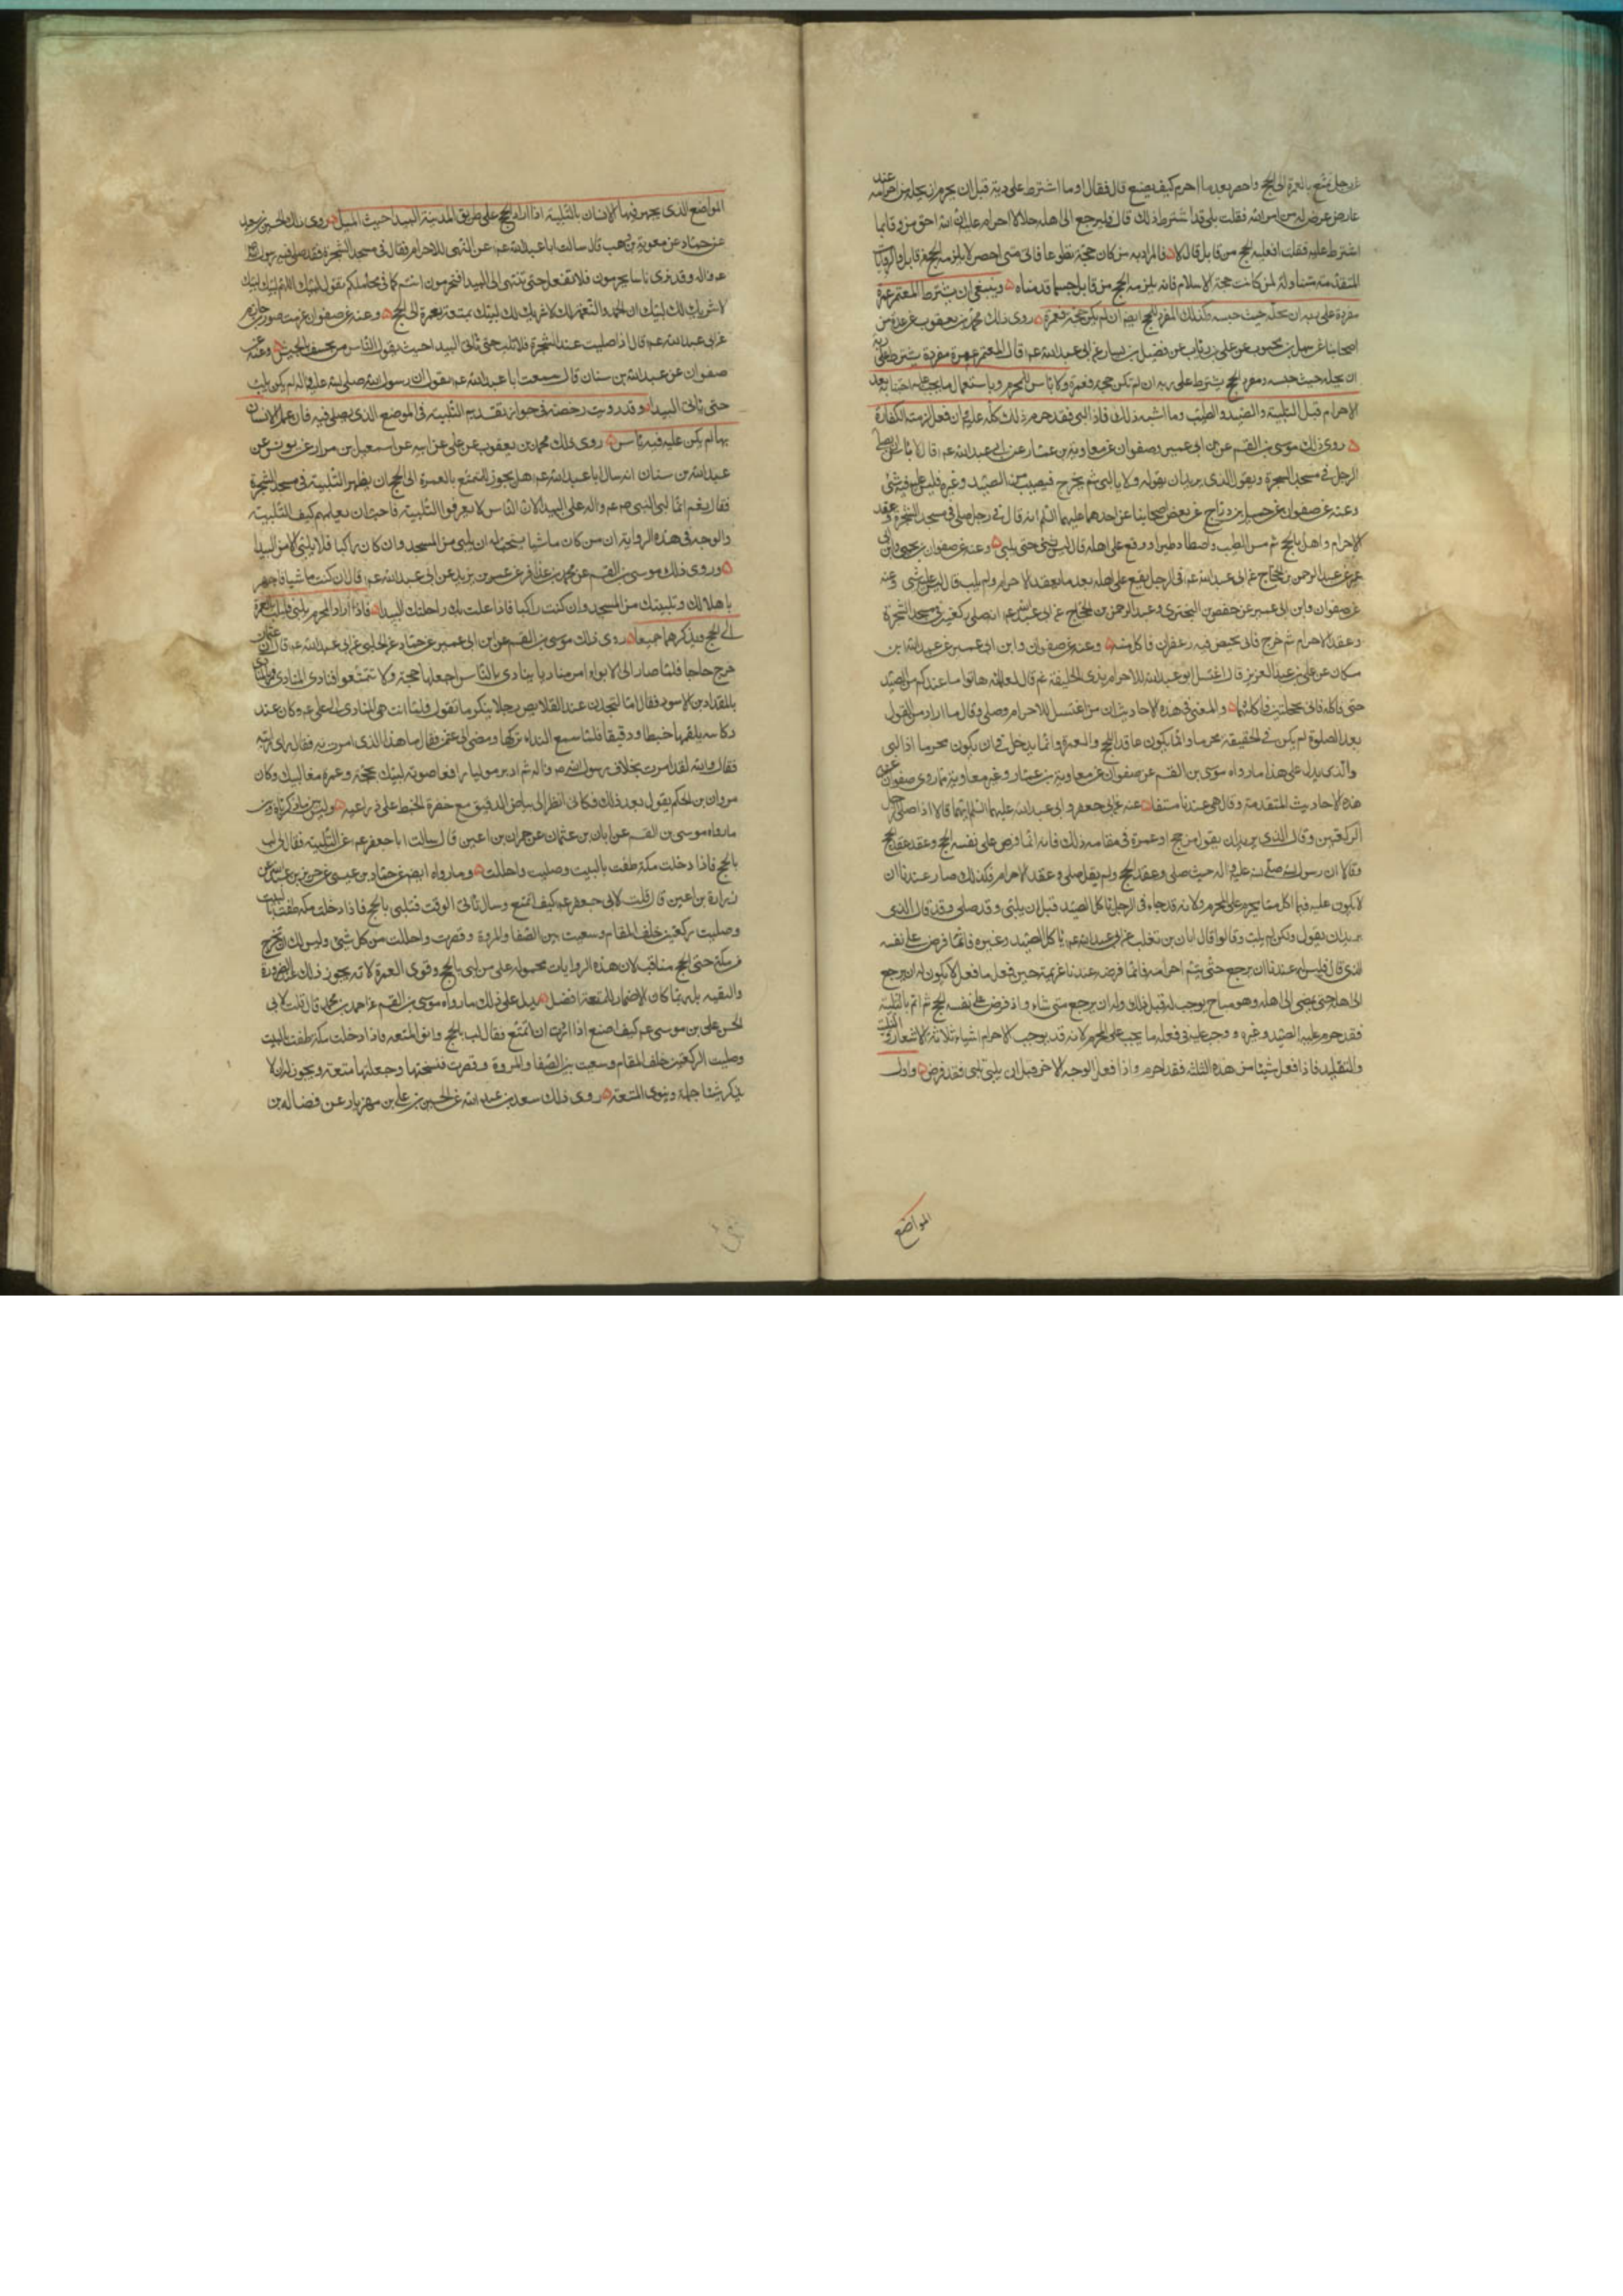 عن رجل تمتع بالعمرة الى الحج واحصر بعد ما احرم كيف يصنع قال فقال او ما اشترط على ربه قبل ان يحرم ان يحله من احرامه عند
عارض عرض له من امر الله فقلت بلى قد اشترط ذلك قال فليرجع الى اهله حلالا احرام عليه ان الله احق من وفا بما
اشترط عليه فقلت افعليه الحج من قابل قال لا فالمراد به من كان حجته تطوعا فانه متى احصر لا يلزمه الحج من قابل والروايات
المتقدمة متناولة لمن كانت حجة الاسلام فانه يلزمه الحج من قابل حسبما قدمناه وينبغي ان يشترط المعتمر عمرة
مفردة على ربه ان يحله حيث حبسه وكذلك المفرد للحج ايضا ان لم يكن حجة فعمرة روى ذلك محمد بن يعقوب عن عدة من
اصحابنا عن سهل بن محبوب عن علي بن رئاب عن فضيل بن يسار عن ابي عبد الله عم قال المعتمر عمرة مفردة يشترط على ربه
ان يحله حيث حبسه ومفرد الحج يشترط على ربه ان لم تكن حجة فعمرة ولا باس للمحرم باستعمال ما يجب عليه اجتنابه بعد
الاحرام قبل التلبية والصيد والطيب وما اشبه ذلك فاذا لبى فقد حرم ذلك كله عليه وان فعل لزمته الكفارة
روى ذلك موسى بن القسم عن ابن ابي عمير وصفوان عن معاوية بن عمار عن ابي عبد الله عم قال لا باس ان يصلي
الرجل في مسجد الشجرة ويقول الذي يريد ان يقوله ولا يلبي ثم يخرج فيصيب من الصيد وغيره فليس عليه فيه شئ
وعنه عن صفوان عن جميل بن دراج عن بعض اصحابنا عن احدهما عليهما السلم انه قال في رجل صلى في مسجد الشجرة وعقد
الاحرام واهل بالحج ثم مس الطيب واصطاد طيرا ووقع على اهله قال ليس بشئ حتى يلبي وعنه عن صفوان بن يحيى وابن ابي
عمير عن عبد الرحمن بن الحجاج عن ابي عبد الله عم في الرجل يقع على اهله بعد ما يعقد الاحرام ولم يلب قال ليس عليه شئ وعنه
عن صفوان وابن ابي عمير عن حفص بن البختري وعبد الرحمن بن الحجاج عن ابي عبد الله عم انه صلى ركعتين في مسجد الشجرة
وعقد الاحرام ثم خرج فاتي بخبيص فيه زعفران فاكل منه وعنه عن صفوان وابن ابي عمير عن عبد الله بن
مسكان عن علي بن عبد العزيز قال اغتسل ابو عبد الله للاحرام بذي الحليفة ثم قال لغلمانه هاتوا ما عندكم من الصيد
حتى ناكله فاتي بحجلتين فاكلهما والمعنى في هذه الاحاديث ان من اغتسل للاحرام وصلى وقال ما اراد من القول
بعد الصلوة لم يكن في الحقيقة محرما وانما يكون عاقدا للحج والعمرة وانما يدخل في ان يكون محرما اذا لبى
والذي يدل على هذا ما رواه موسى بن القسم عن صفوان عن معاوية بن عمار وغير معاوية ممن روى صفوان عنه
هذه الاحاديث المتقدمة وقال هي عندنا مستفاد عنه عن ابي جعفر وابي عبد الله عليهما السلم انهما قالا اذا صلى الرجل
الركعتين وقال الذي يريد ان يقول من حج او عمرة في مقامه ذلك فانه انما فرض على نفسه الحج وعقد عقد الحج
وقالا ان رسول الله صلى الله عليه واله حيث صلى وعقد الحج ولم يقل صلى وعقد الاحرام فكذلك صار عندنا ان
لا يكون عليه فيما اكل مما يحرم على المحرم ولانه قد جاء في الرجل ياكل الصيد قبل ان يلبي وقد صلى وقد قال الذي
يريد ان يقول ولكن لم يلب وقالوا قال ابان بن تغلب عن ابي عبد الله عم ياكل الصيد وغيره فانما فرض على نفسه
الذي قال فليس له عندنا ان يرجع حتى يتم احرامه فانما فرضه عندنا عزيمة حين فعل ما فعل لا يكون له ان يرجع
الى اهله حتى يمضي الى اهله وهو مباح يوجب له قبل ذلك وله ان يرجع متى شاء واذا فرض على نفسه الحج ثم اتم بالتلبية
فقد حرم عليه الصيد وغيره ووجب عليه في فعله ما يجب على المحرم لانه قد يوجب الاحرام اشياء ثلاثة الاشعار والتلبية
والتقليد فاذا فعل شيئا من هذه الثلثة فقد احرم واذا فعل الوجه الاخر قبل ان يلبي لبى فقد فرض واول
المواضع
المواضع الذي يجهر فيها الانسان بالتلبية اذا اراد الحج على طريق المدينة البيدا حيث الميل روى ذلك الحسين بن سعيد
عن حماد عن معوية بن وهب قال سالت ابا عبد الله عم عن التهئ للاحرام فقال في مسجد الشجرة فقد صلى فيه رسول الله
واله وقد ترى ناسا يحرمون فلا تفعل حتى تنتهي الى البيدا فتحرمون انتم كما في محاملكم تقول لبيك اللهم لبيك لبيك
لا شريك لك لبيك ان الحمد والنعمة لك لا شريك لك لبيك بمتعة بعمرة الى الحج وعنه عن صفوان عن منصور بن حازم
عن ابي عبد الله عم قال اذا صليت عند الشجرة فلا تلب حتى تاتي البيدا حيث يقول الناس من يخسف بالجيش وعنه عن
صفوان عن عبد الله بن سنان قال سمعت ابا عبد الله عم يقول ان رسول الله صلى الله عليه واله لم يكن يلب
حتى ياتي البيدا وقد رويت رخصة في جواز تقديم التلبية في الموضع الذي يصلي فيه فان عمل الانسان
بها لم يكن عليه فيه باس روى ذلك محمد بن يعقوب عن علي عن ابيه عن اسمعيل بن مرار عن يونس عن
عبد الله بن سنان انه سال ابا عبد الله عم هل يجوز للمتمتع بالعمرة الى الحج ان يظهر التلبية في مسجد الشجرة
فقال نعم انما لبى النبي ص واله على البيدا لان الناس لا يعرفوا التلبية فاحب ان يعلمهم كيف التلبية
والوجه في هذه الرواية ان من كان ماشيا يستحب له ان يلبي من المسجد وان كان راكبا فلا يلبي الا من البيدا
وروى ذلك موسى بن القسم عن محمد بن عذافر عن عمر بن يزيد عن ابي عبد الله عم قال ان كنت ماشيا فاجهر
باهلالك وتلبيتك من المسجد وان كنت راكبا فاذا علت بك راحلتك البيدا فاذا اراد المحرم يلبي فليلب بالعمرة
الى الحج ويذكرهما جميعا روى ذلك موسى بن القسم عن ابن ابي عمير عن حماد عن الحلبي عن ابي عبد الله عم قال ان عثمان
خرج حاجا فلما صار الى الابوا امر مناديا ينادي بالناس اجعلها حجة ولا تمتعوا فنادى المنادي فمر المنادي
بالمقداد بن الاسود فقال اما لتجدن عند القلايص رجلا ينكر ما تقول فلما انتهى المنادي الى علي عم وكان عند
ركائبه يلقمها خبطا ودقيقا فلما سمع النداء تركها ومضى الى عثمن فقال ما هذا الذي امرت به فقال راي رايته
فقال والله لقد امرت بخلاف رسول الله ص واله ثم ادبر موليا رافعا صوته لبيك بحجة وعمرة معا لبيك وكان
مروان بن الحكم يقول بعد ذلك فكاني انظر الى بياض الدقيق مع خضرة الخبط على ذراعيه
ما رواه موسى بن القسم عن ابان بن عثمان عن حمران بن اعين قال سالت ابا جعفر عم عن التلبية فقال لي لب
بالحج فاذا دخلت مكة طفت بالبيت وصليت واحللت وما رواه ايضا عن حماد بن عيسى عن حريز بن عبد الله عن
زرارة بن اعين قال قلت لابي جعفر عم كيف اتمتع وسال تاتي الوقت فتلبي بالحج فاذا دخلت مكة طفت بالبيت
وصليت ركعتين خلف المقام وسعيت بين الصفا والمروة وقصرت واحللت من كل شئ وليس لك ان تخرج
من مكة حتى الحج لان هذه الروايات محمولة على من لبى بالحج ونوى العمرة لانه يجوز ذلك عند الضرورة
والتقية بل ربما كان الاضمار للمتعة افضل يدل على ذلك ما رواه موسى بن القسم عن احمد بن محمد قال قلت لابي
الحسن علي بن موسى عم كيف اصنع اذا اردت ان اتمتع فقال لب بالحج وانو المتعه فاذا دخلت مكة طفت بالبيت
وصليت الركعتين خلف المقام وسعيت بين الصفا والمروة وقصرت فنسختها وجعلتها متعة ويجوز له ان لا
يذكر شيئا جملة وينوي المتعة روى ذلك سعد بن عبد الله عن الحسين بن علي بن مهزيار عن فضالة بن